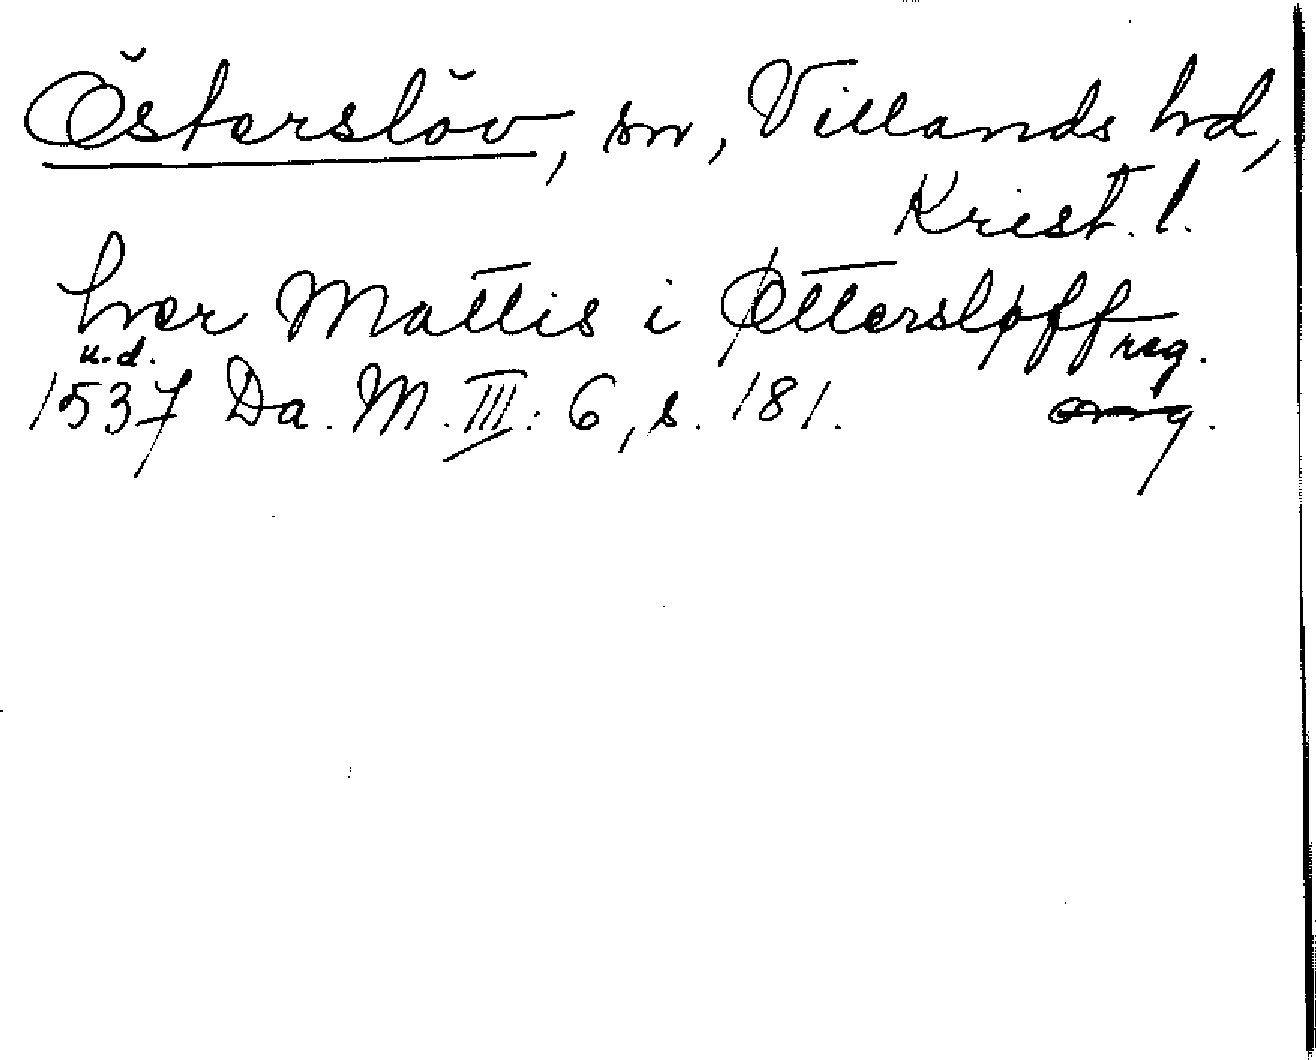 Österslöv, sn, Villands hd,
Krist. l.
her Mattis i Øttersløff
u.d. reg.
1537 Da. M. III: 6, s. 181.